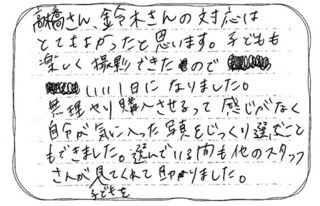 高橋さん、鈴木さんの対応は
とてもよかったと思います。子どもも
楽しく撮影できたので
いい1日になりました。
無理やり購入させるって感じがなく
自分が気に入った写真をじっくり選ぶこと
もできました。選んでいる間も他のスタッフ
さんが見てくれて助かりました。
子どもを